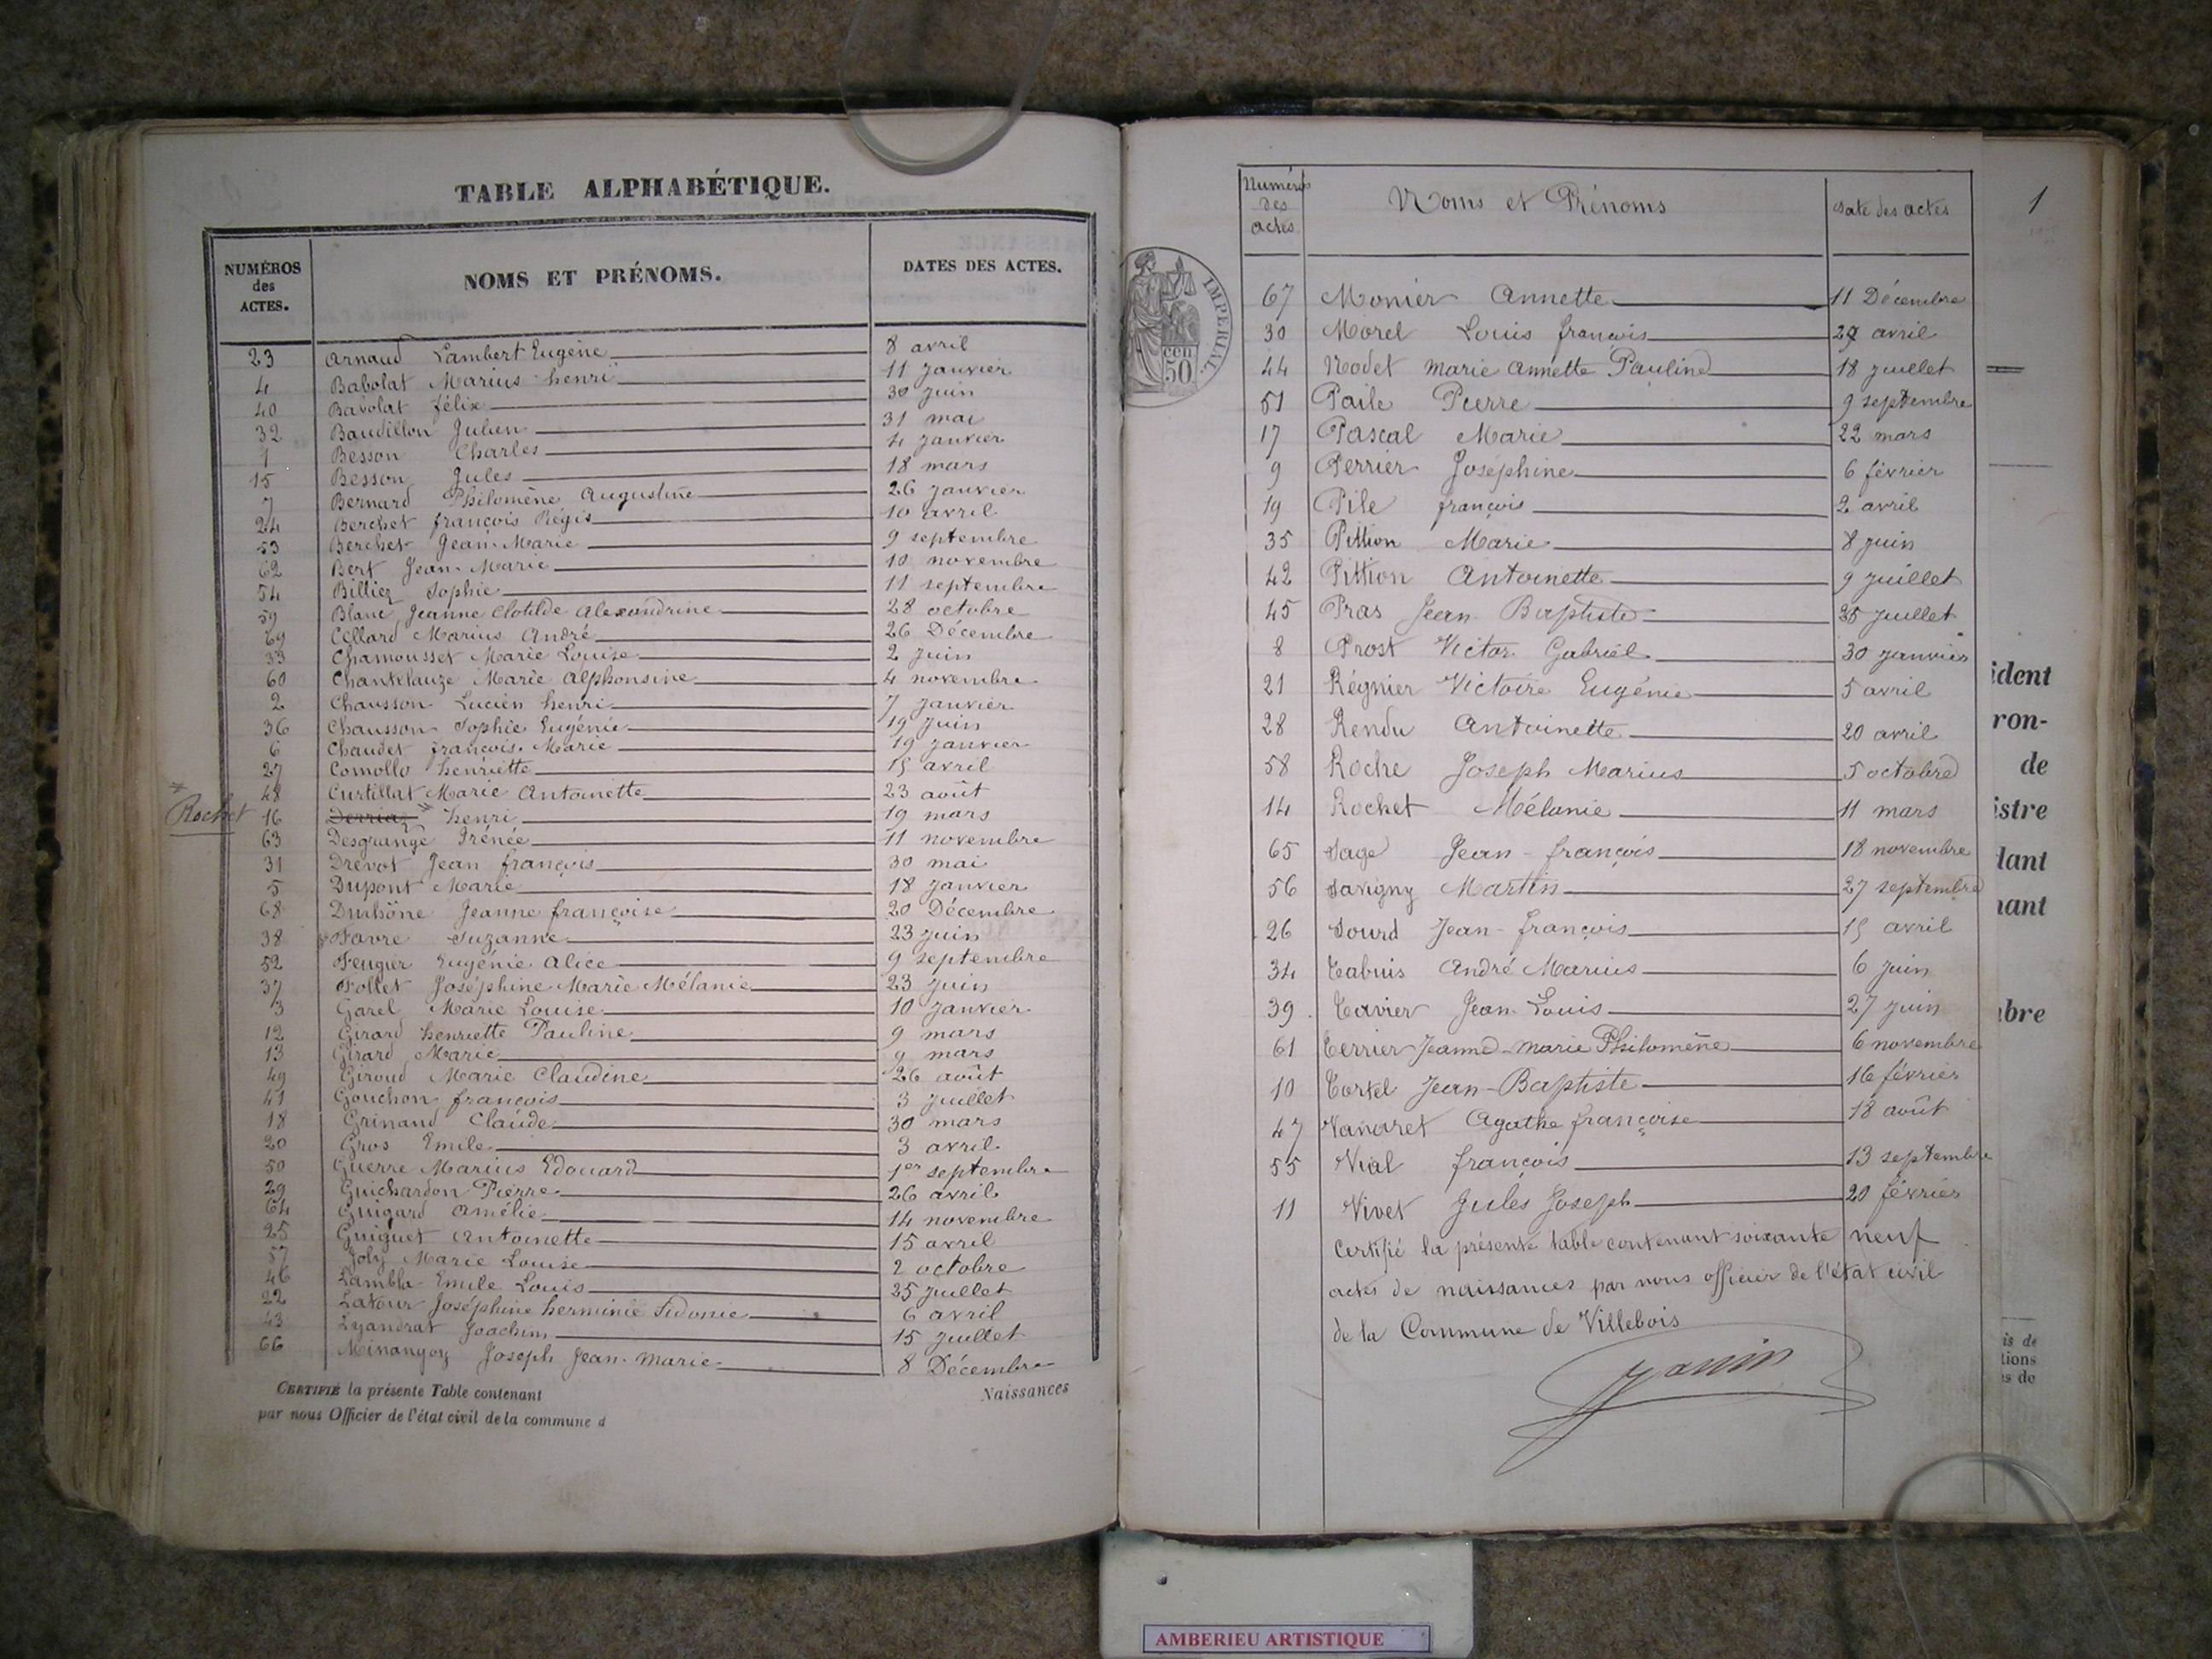 TABLE ALPHABÉTIQUE.
NUMÉROS des ACTES. NOMS ET PRÉNOMS. DATES DES ACTES.
23 Arnaud Lambert Eugène 8 avril
4 Babolat Marius henri 11 Janvier
40 Bavolat félix 30 Juin
32 Baudillon Julien 31 mai
1 Besson Charles 4 Janvier
15 Besson Jules 18 mars
7 Bernard Philomène Augustine 26 Janvier
24 Berchet françois Régis 10 avril
53 Berchet Jean-Marie 9 septembre
62 Bert Jean-Marie 10 novembre
54 Billiez Sophie 11 septembre
59 Blanc Jeanne Clotilde Alexandrine 28 octobre
69 Cellard Marius André 26 Décembre
33 Chamousset Marie Louise 2 Juin
60 Chantelauze Marie Alphonsine 4 novembre
2 Chausson Lucien henri 7 Janvier
36 Chausson Sophie Eugénie 19 Juin
6 Chaudet françois-Marie 19 Janvier
27 Comollo henriette 15 avril
48 Curtillat Marie Antoinette 23 août
Rochet 16 Derriaz henri 19 mars
63 Desgrange Irénée 11 novembre
31 Drevot Jean françois 30 mai
5 Dupont Marie 18 Janvier
68 Duchêne Jeanne françoise 20 Décembre
38 Favre Suzanne 23 Juin
52 Feugier Eugénie Alice 9 septembre
37 Follet Joséphine Marie Mélanie 23 Juin
3 Garel Marie Louise 10 Janvier
12 Girard henriette Pauline 9 mars
13 Girard Marie 9 mars
49 Giroud Marie Claudine 26 août
41 Gouchon françois 3 Juillet
18 Grinand Claude 30 mars
20 Gros Emile 3 avril
50 Guerre Marius Edouard 1er septembre
29 Guichardon Pierre 26 avril
64 Guigard Amélie 14 novembre
25 Guiguet Antoinette 15 avril
57 Joly Marie Louise 2 octobre
46 Lambla Emile Louis 25 Juillet
22 Latour Joséphine herminie Sidonie 6 avril
43 Lyandrat Joachim 15 Juillet
66 Minangoy Joseph Jean-Marie 8 Décembre
CERTIFIÉ la présente Table contenant Naissances
par nous Officier de l'état civil de la commune d
Numéros des actes Noms et Prénoms Date des actes
1
IMPERIAL.
50 cen
67 Monier Annette 11 Décembre
30 Morel Louis françois 29 avril
44 Nodet marie Annette Pauline 18 juillet
51 Paile Pierre 9 septembre
17 Pascal Marie 22 mars
9 Perrier Joséphine 6 février
19 Pile françois 2 avril
35 Pittion Marie 8 juin
42 Pittion Antoinette 9 juillet
45 Pras Jean Baptiste 25 juillet
8 Prost Victor Gabriel 30 janvier
21 Régnier Victoire Eugénie 5 avril
28 Rendu Antoinette 20 avril
58 Roche Joseph Marius 5 octobre
14 Rochet Mélanie 11 mars
65 Sage Jean-françois 18 novembre
56 Savigny Martin 27 septembre
26 Sourd Jean-françois 15 avril
34 Tabuis André Marius 6 juin
39 Tavier Jean-Louis 27 juin
61 Terrier Jeanne-marie Philomène 6 novembre
10 Tortel Jean-Baptiste 16 février
47 Vanaret Agathe françoise 18 août
55 Vial françois 13 septembre
11 Vivet Jules Joseph 20 février
Certifié la présente table contenant soixante neuf
actes de naissances par nous officier de l'état civil
de la Commune de Villebois
ident
ron-
de
istre
lant
nant
bre
is de
tions
s de
AMBERIEU ARTISTIQUE